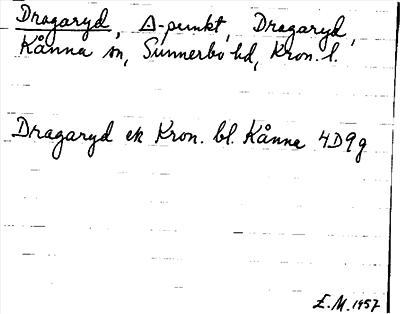 Dragaryd, Δ-punkt, Dragaryd,
Kånna sn, Sunnerbo hd, Kron. l.
Dragaryd ek Kron. bl. Kånna 4D9g
E.M. 1957